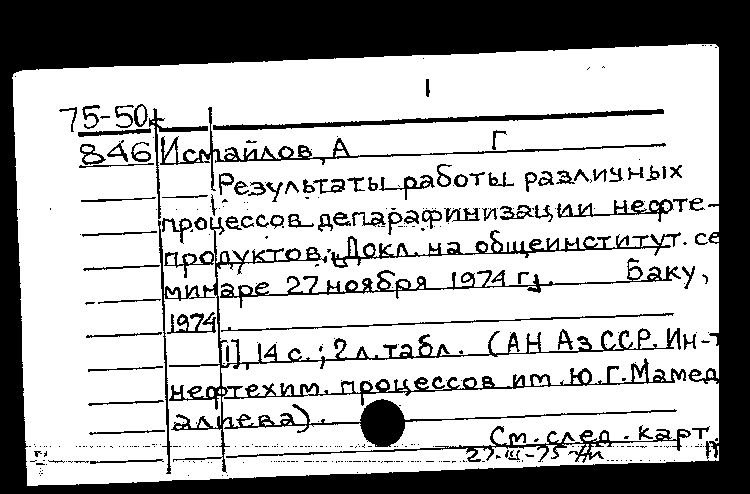 1
75-50
846 Исмайлов, А Г
Результаты работы различных
процессов депарафинизации нефте-
продуктов. Докл. на общеинститут. се
минаре 27 ноября 1974 г. Баку,
1974.
[1], 14 с.; 2 л. табл. (АН АзССР. Ин-т
нефтехим. процессов им. Ю. Г. Мамед
алиева).
См. след. карт.
27-III-75